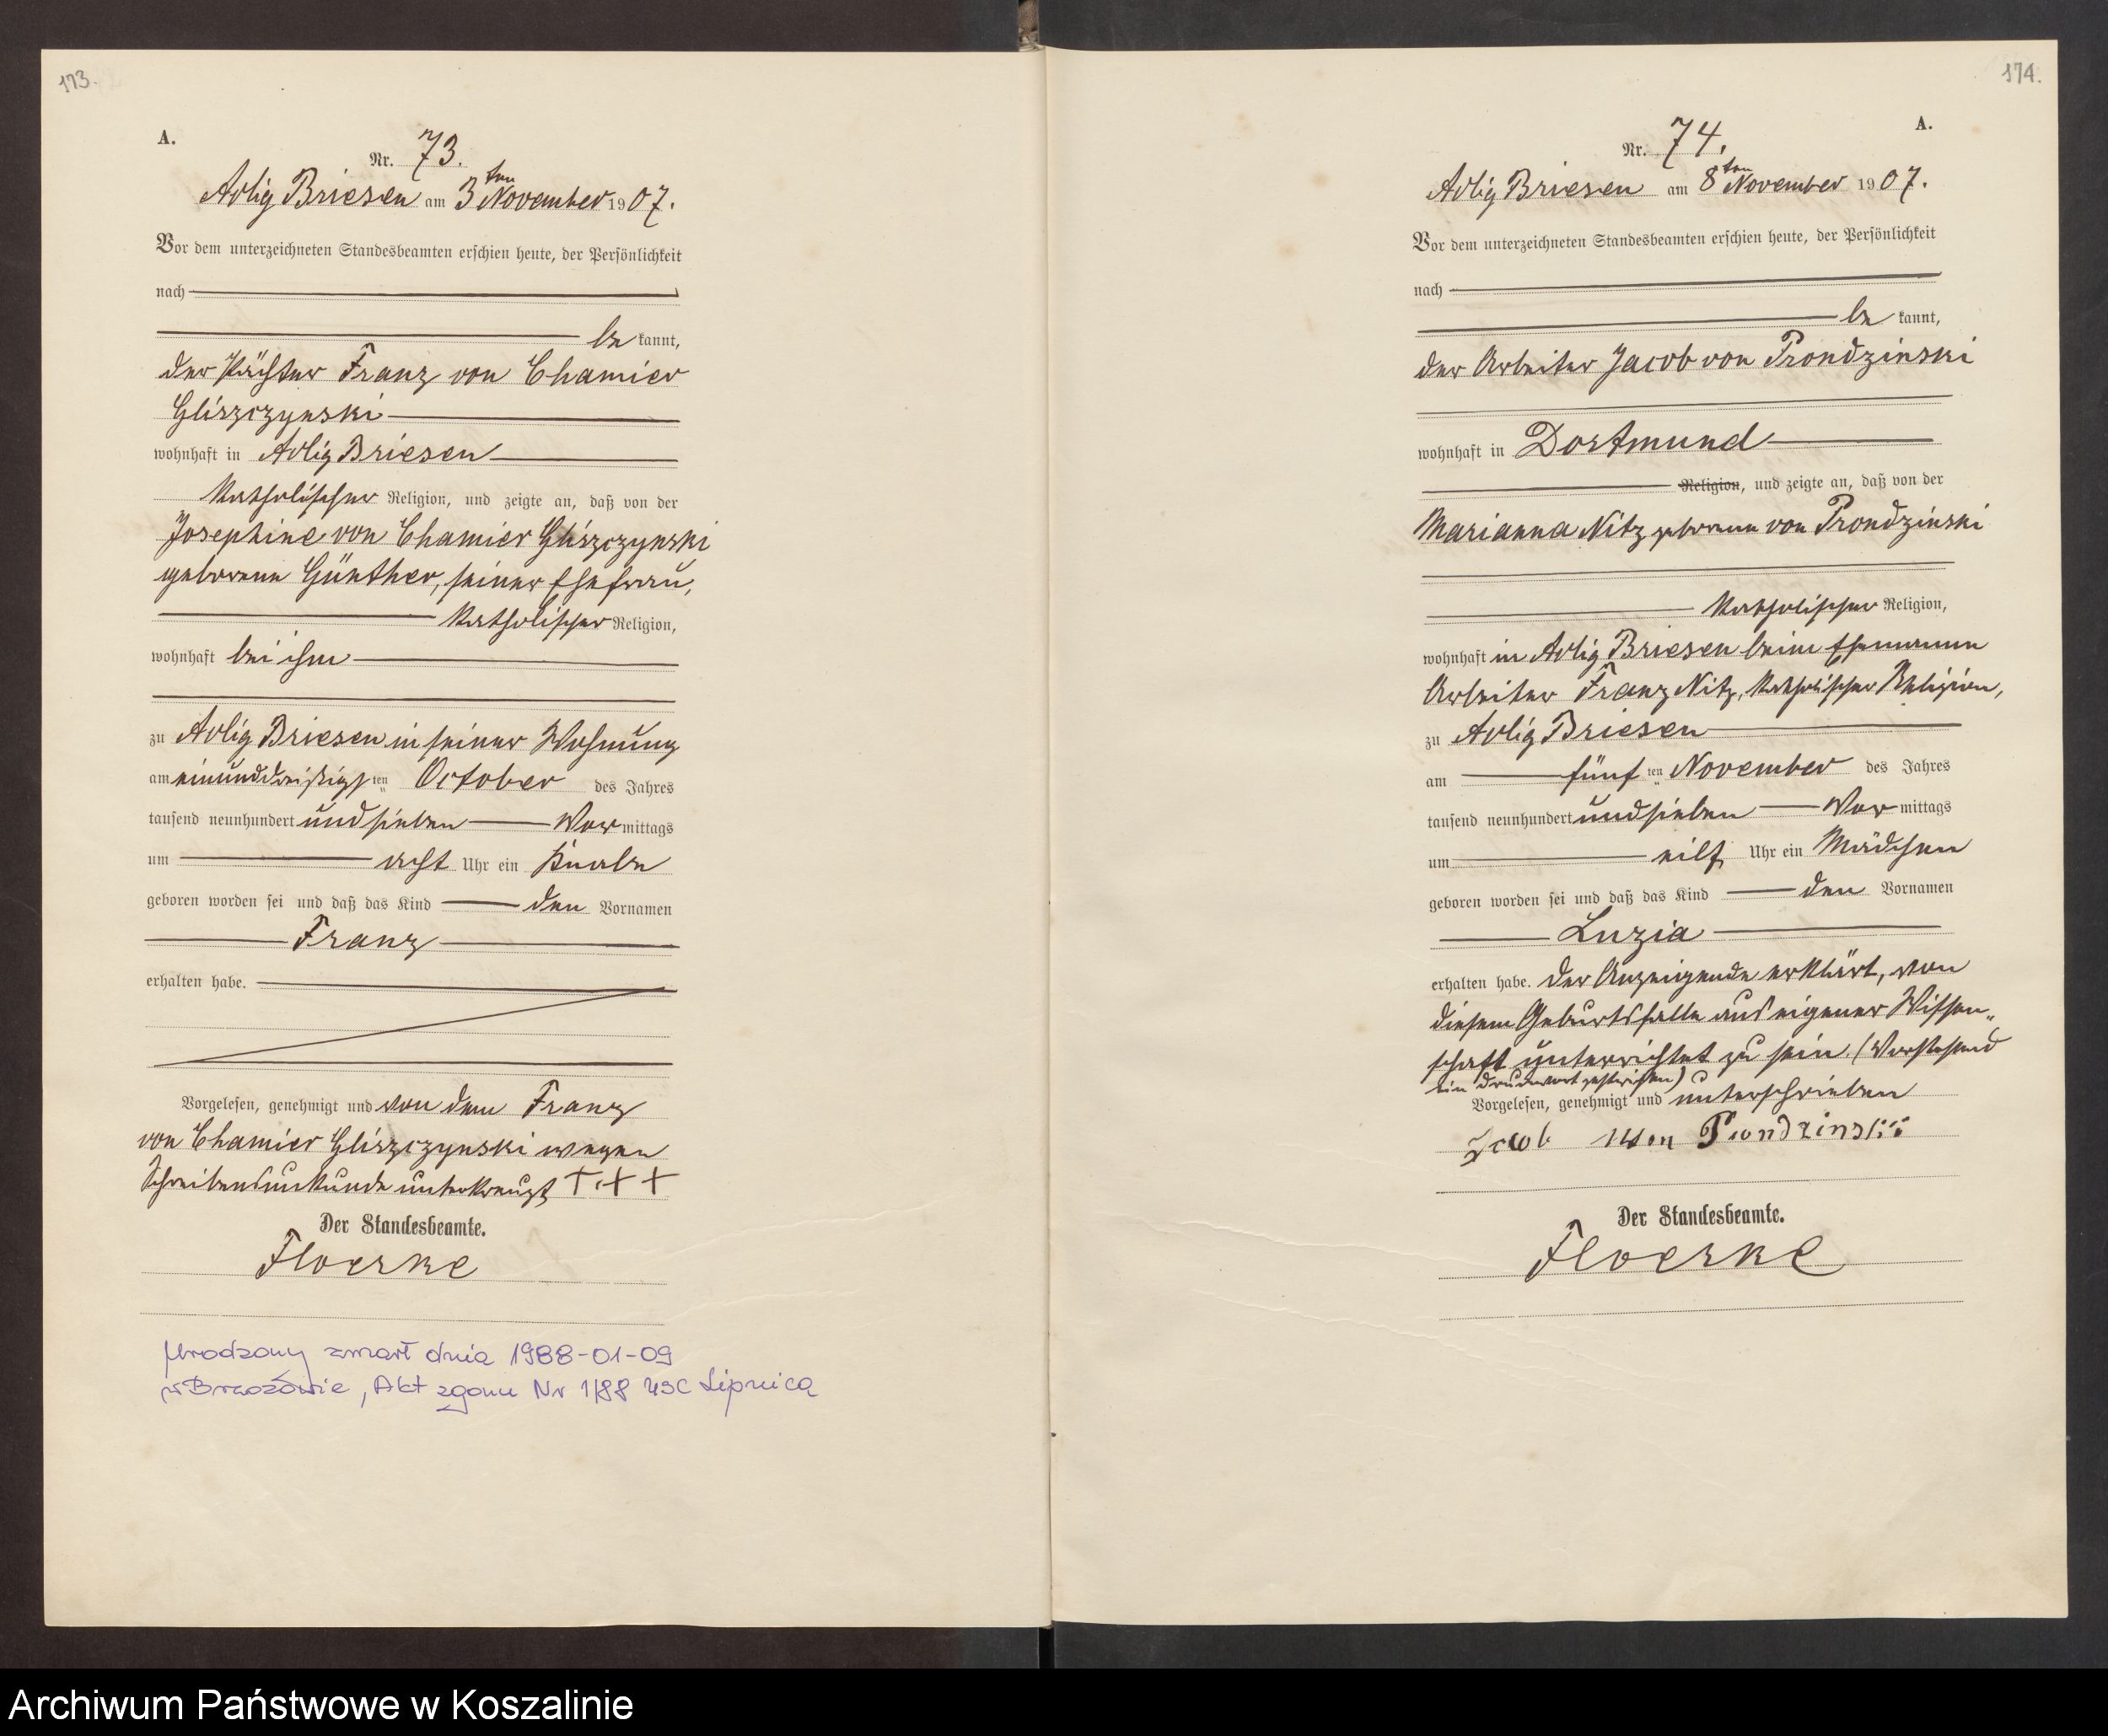 173.
A.
Nr. 73.
Adlig Briesen am 3ten November 1907.
Vor dem unterzeichneten Standesbeamten erschien heute, der Persönlichkeit
nach
be kannt,
der Pächter Franz von Chamier
Gliszczynski
wohnhaft in Adlig Briesen
katholischer Religion, und zeigte an, daß von der
Josephine von Chamier Gliszczynski
geborene Günther, seiner Ehefrau,
katholischer Religion,
wohnhaft bei ihm
zu Adlig Briesen in seiner Wohnung
am einunddreißigsten October des Jahres
tausend neunhundert und sieben Vor mittags
um acht Uhr ein Knabe
geboren worden sei und daß das Kind den Vornamen
Franz
erhalten habe.
Vorgelesen, genehmigt und von dem Franz
von Chamier Gliszczynski wegen
Schreibensunkunde unterkreuzt +++
Der Standesbeamte.
Floerke
Urodzony zmarł dnia 1988-01-09
w Brzozowie, Akt zgonu Nr 1/88 USC Lipnica
174.
A.
Nr. 74.
Adlig Briesen am 8ten November 1907.
Vor dem unterzeichneten Standesbeamten erschien heute, der Persönlichkeit
nach
be kannt,
der Arbeiter Jacob von Prondzinski
wohnhaft in Dortmund
Religion, und zeigte an, daß von der
Marianna Nitz geborene von Prondzinski
katholischer Religion,
wohnhaft in Adlig Briesen beim Ehemanne
Arbeiter Franz Nitz, katholischer Religion,
zu Adlig Briesen
am fünften November des Jahres
tausend neunhundert und sieben Vor mittags
um eilf Uhr ein Mädchen
geboren worden sei und daß das Kind den Vornamen
Luzia
erhalten habe. Der Anzeigende erklärt, von
diesem Geburtsfalle aus eigener Wissen-
schaft unterrichtet zu sein. (Vorstehend
ein Druckwort gestrichen)
Vorgelesen, genehmigt und unterschrieben
Jacob von Prondzinski
Der Standesbeamte.
Floerke
Archiwum Państwowe w Koszalinie